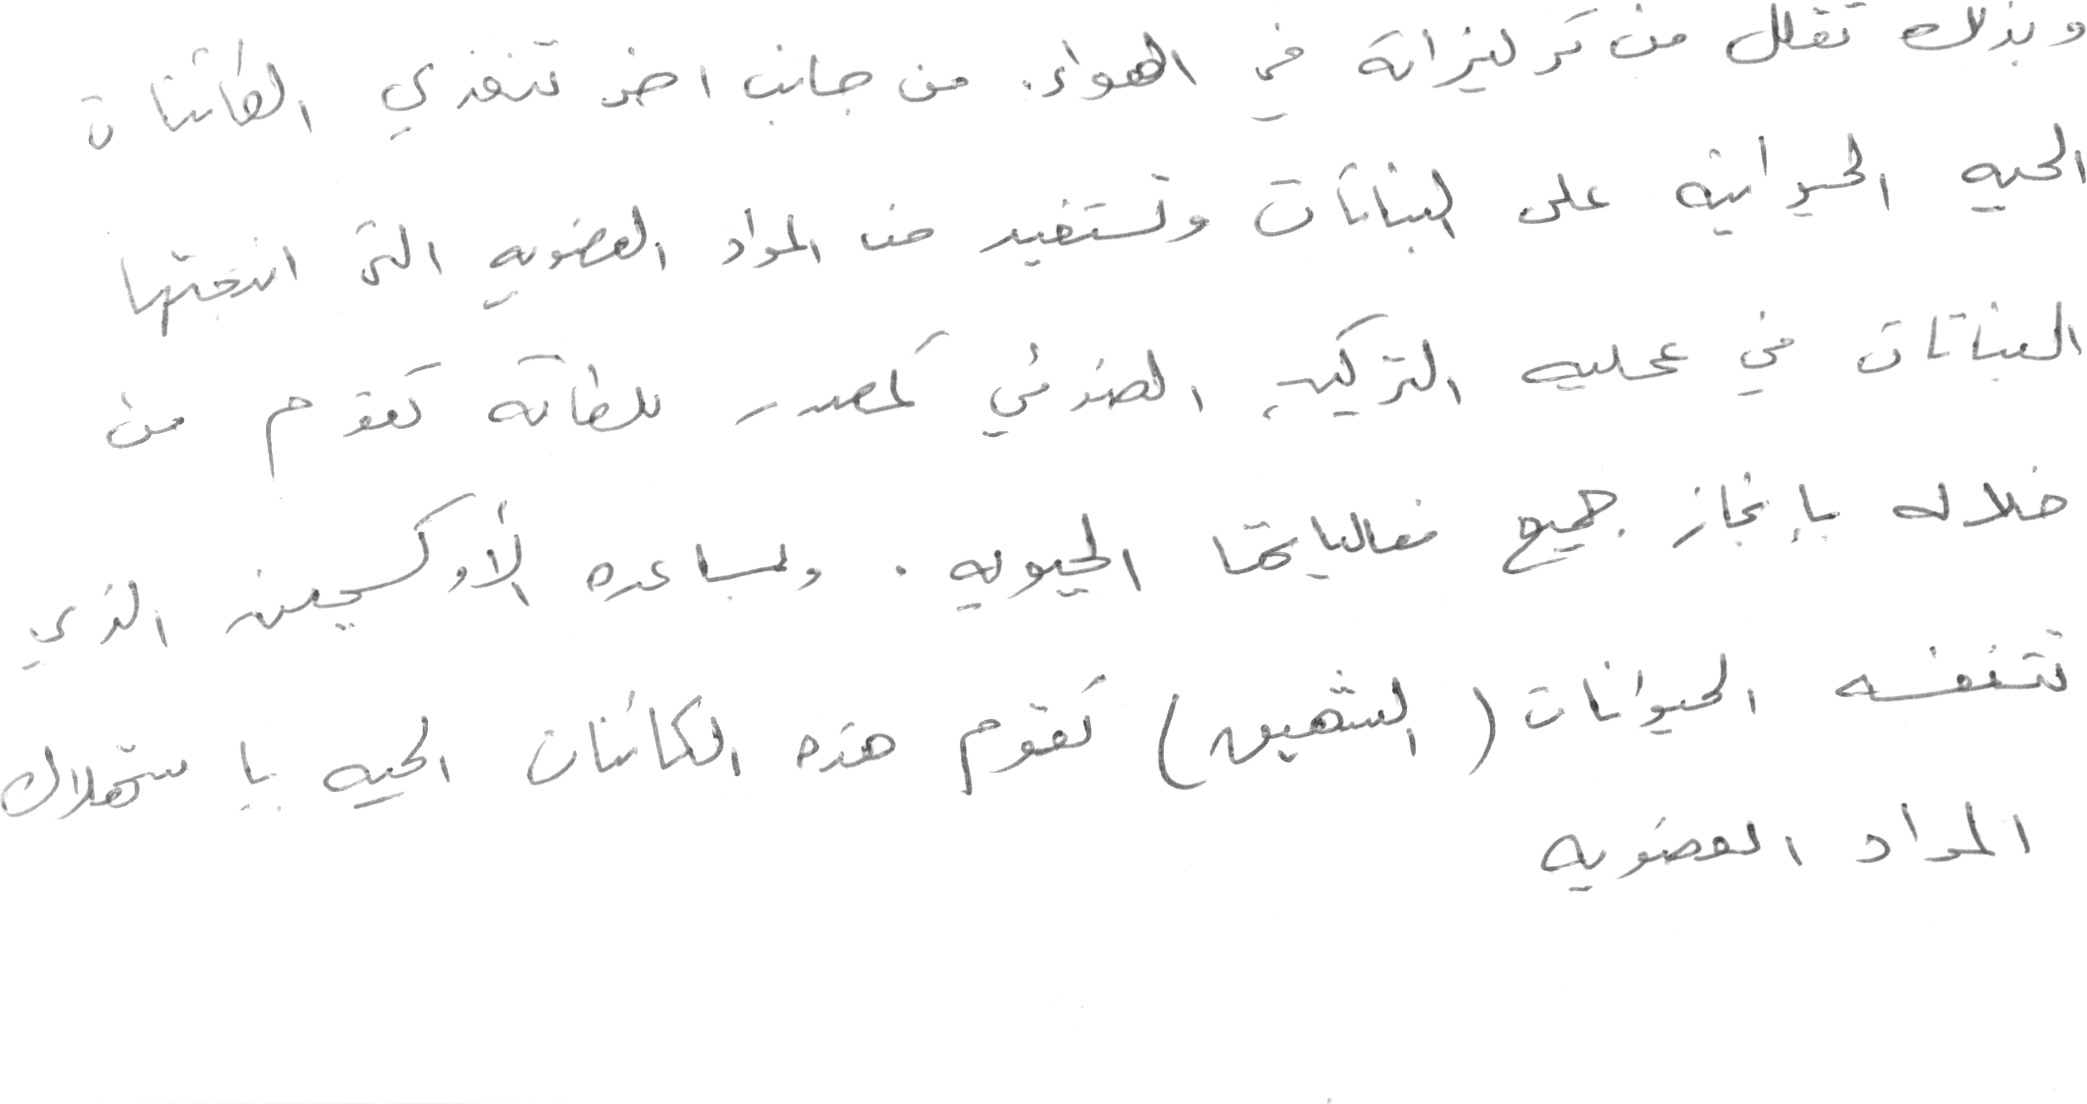 وبذلك تقلل من تركيزاته في الهواء. من جانب اخر تتغذي الكائنات
الحيه الحيوانية على النباتات وتستفيد من المواد العضويه التي انتجتها
النباتات في عمليه التركيب الضوئي كمصدر للطاقه تقوم من
خلاله بإنجاز جميع فعالياتها الحيويه. وبمساعده الأوكسجين الذي
تتنفسه الحيوانات (الشهيق) تقوم هذه الكائنات الحيه باستهلاك
المواد العضويه